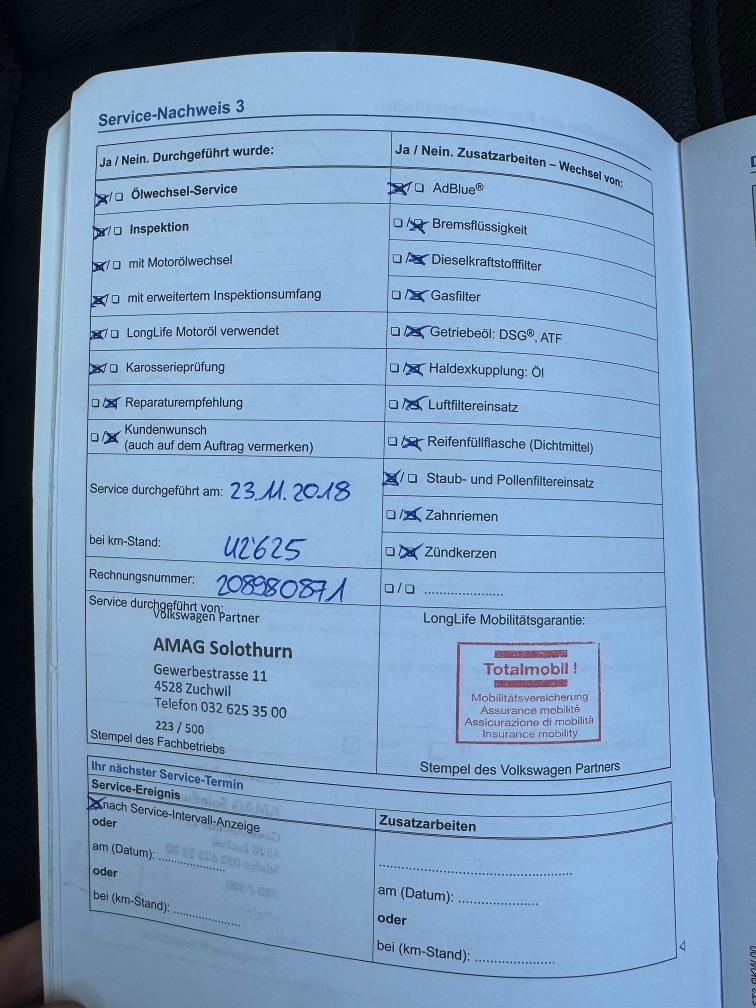 Service-Nachweis 3
Ja / Nein. Durchgeführt wurde:
☒/☐ Ölwechsel-Service
☒/☐ Inspektion
☒/☐ mit Motorölwechsel
☒/☐ mit erweitertem Inspektionsumfang
☒/☐ LongLife Motoröl verwendet
☒/☐ Karosserieprüfung
☐/☒ Reparaturempfehlung
☐/☒ Kundenwunsch
(auch auf dem Auftrag vermerken)
Service durchgeführt am: 23.11.2018
bei km-Stand: 42'625
Rechnungsnummer: 208980871
Service durchgeführt von:
Volkswagen Partner
AMAG Solothurn
Gewerbestrasse 11
4528 Zuchwil
Telefon 032 625 35 00
223 / 500
Stempel des Fachbetriebs
Ja / Nein. Zusatzarbeiten – Wechsel von:
☒/☐ AdBlue®
☐/☒ Bremsflüssigkeit
☐/☒ Dieselkraftstofffilter
☐/☒ Gasfilter
☐/☒ Getriebeöl: DSG®, ATF
☐/☒ Haldexkupplung: Öl
☐/☒ Luftfiltereinsatz
☐/☒ Reifenfüllflasche (Dichtmittel)
☒/☐ Staub- und Pollenfiltereinsatz
☐/☒ Zahnriemen
☐/☒ Zündkerzen
☐/☐ ......................
LongLife Mobilitätsgarantie:
Totalmobil !
Mobilitätsversicherung
Assurance mobilité
Assicurazione di mobilità
Insurance mobility
Stempel des Volkswagen Partners
Ihr nächster Service-Termin
Service-Ereignis
☒ nach Service-Intervall-Anzeige
oder
am (Datum): ..................
oder
bei (km-Stand): ..................
Zusatzarbeiten
....................................................
am (Datum): ......................
oder
bei (km-Stand): ......................